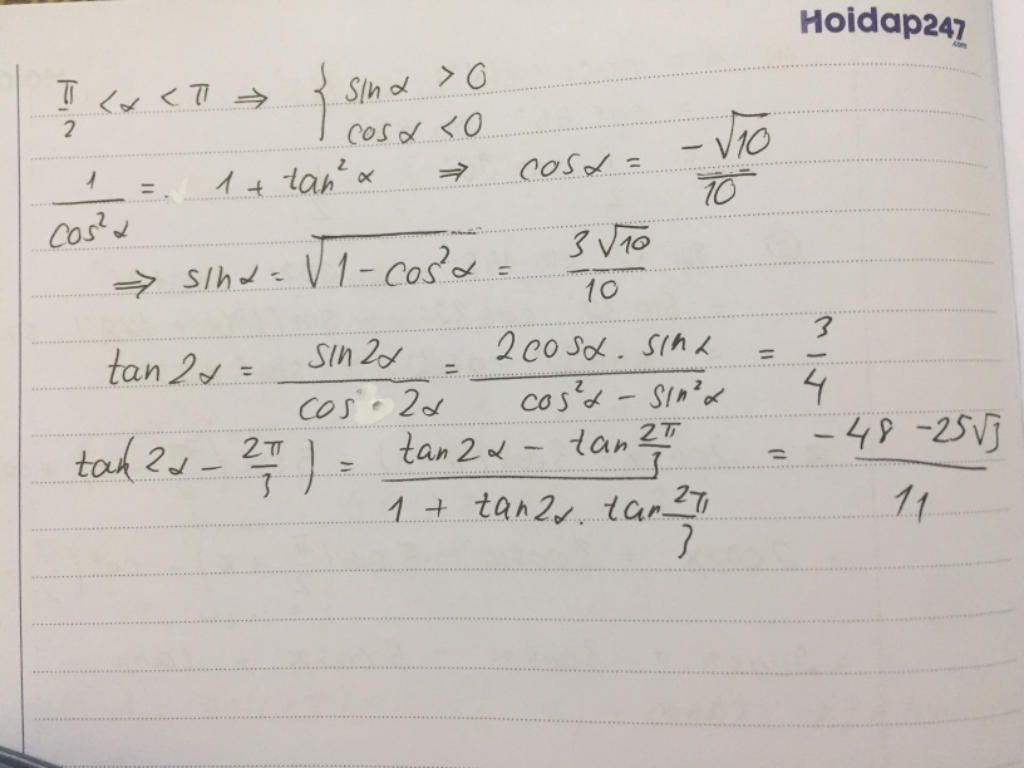 Hoidap247.com
π/2 < α < π ⇒ { sin α > 0
cos α < 0
1/cos²α = 1 + tan²α ⇒ cos α = -√10/10
⇒ sin α = √(1 - cos²α) = 3√10/10
tan 2α = sin 2α / cos 2α = 2cos α . sin α / cos²α - sin²α = 3/4
tan(2α - 2π/3) = tan 2α - tan 2π/3 / 1 + tan 2α . tan 2π/3 = -48 - 25√3 / 11